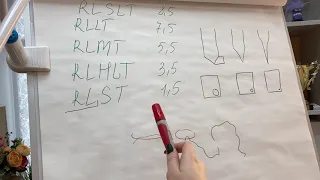 RLSLT
RLLT 7,5
RLMT 5,5
RLHLT 3,5
RLST 1,5